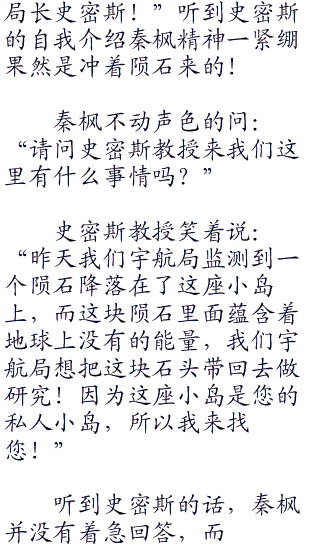 局长史密斯！”听到史密斯
的自我介绍秦枫精神一紧绷
果然是冲着陨石来的！
秦枫不动声色的问：
“请问史密斯教授来我们这
里有什么事情吗？”
史密斯教授笑着说：
“昨天我们宇航局监测到一
个陨石降落在了这座小岛
上，而这块陨石里面蕴含着
地球上没有的能量，我们宇
航局想把这块石头带回去做
研究！因为这座小岛是您的
私人小岛，所以我来找
您！”
听到史密斯的话，秦枫
并没有着急回答，而